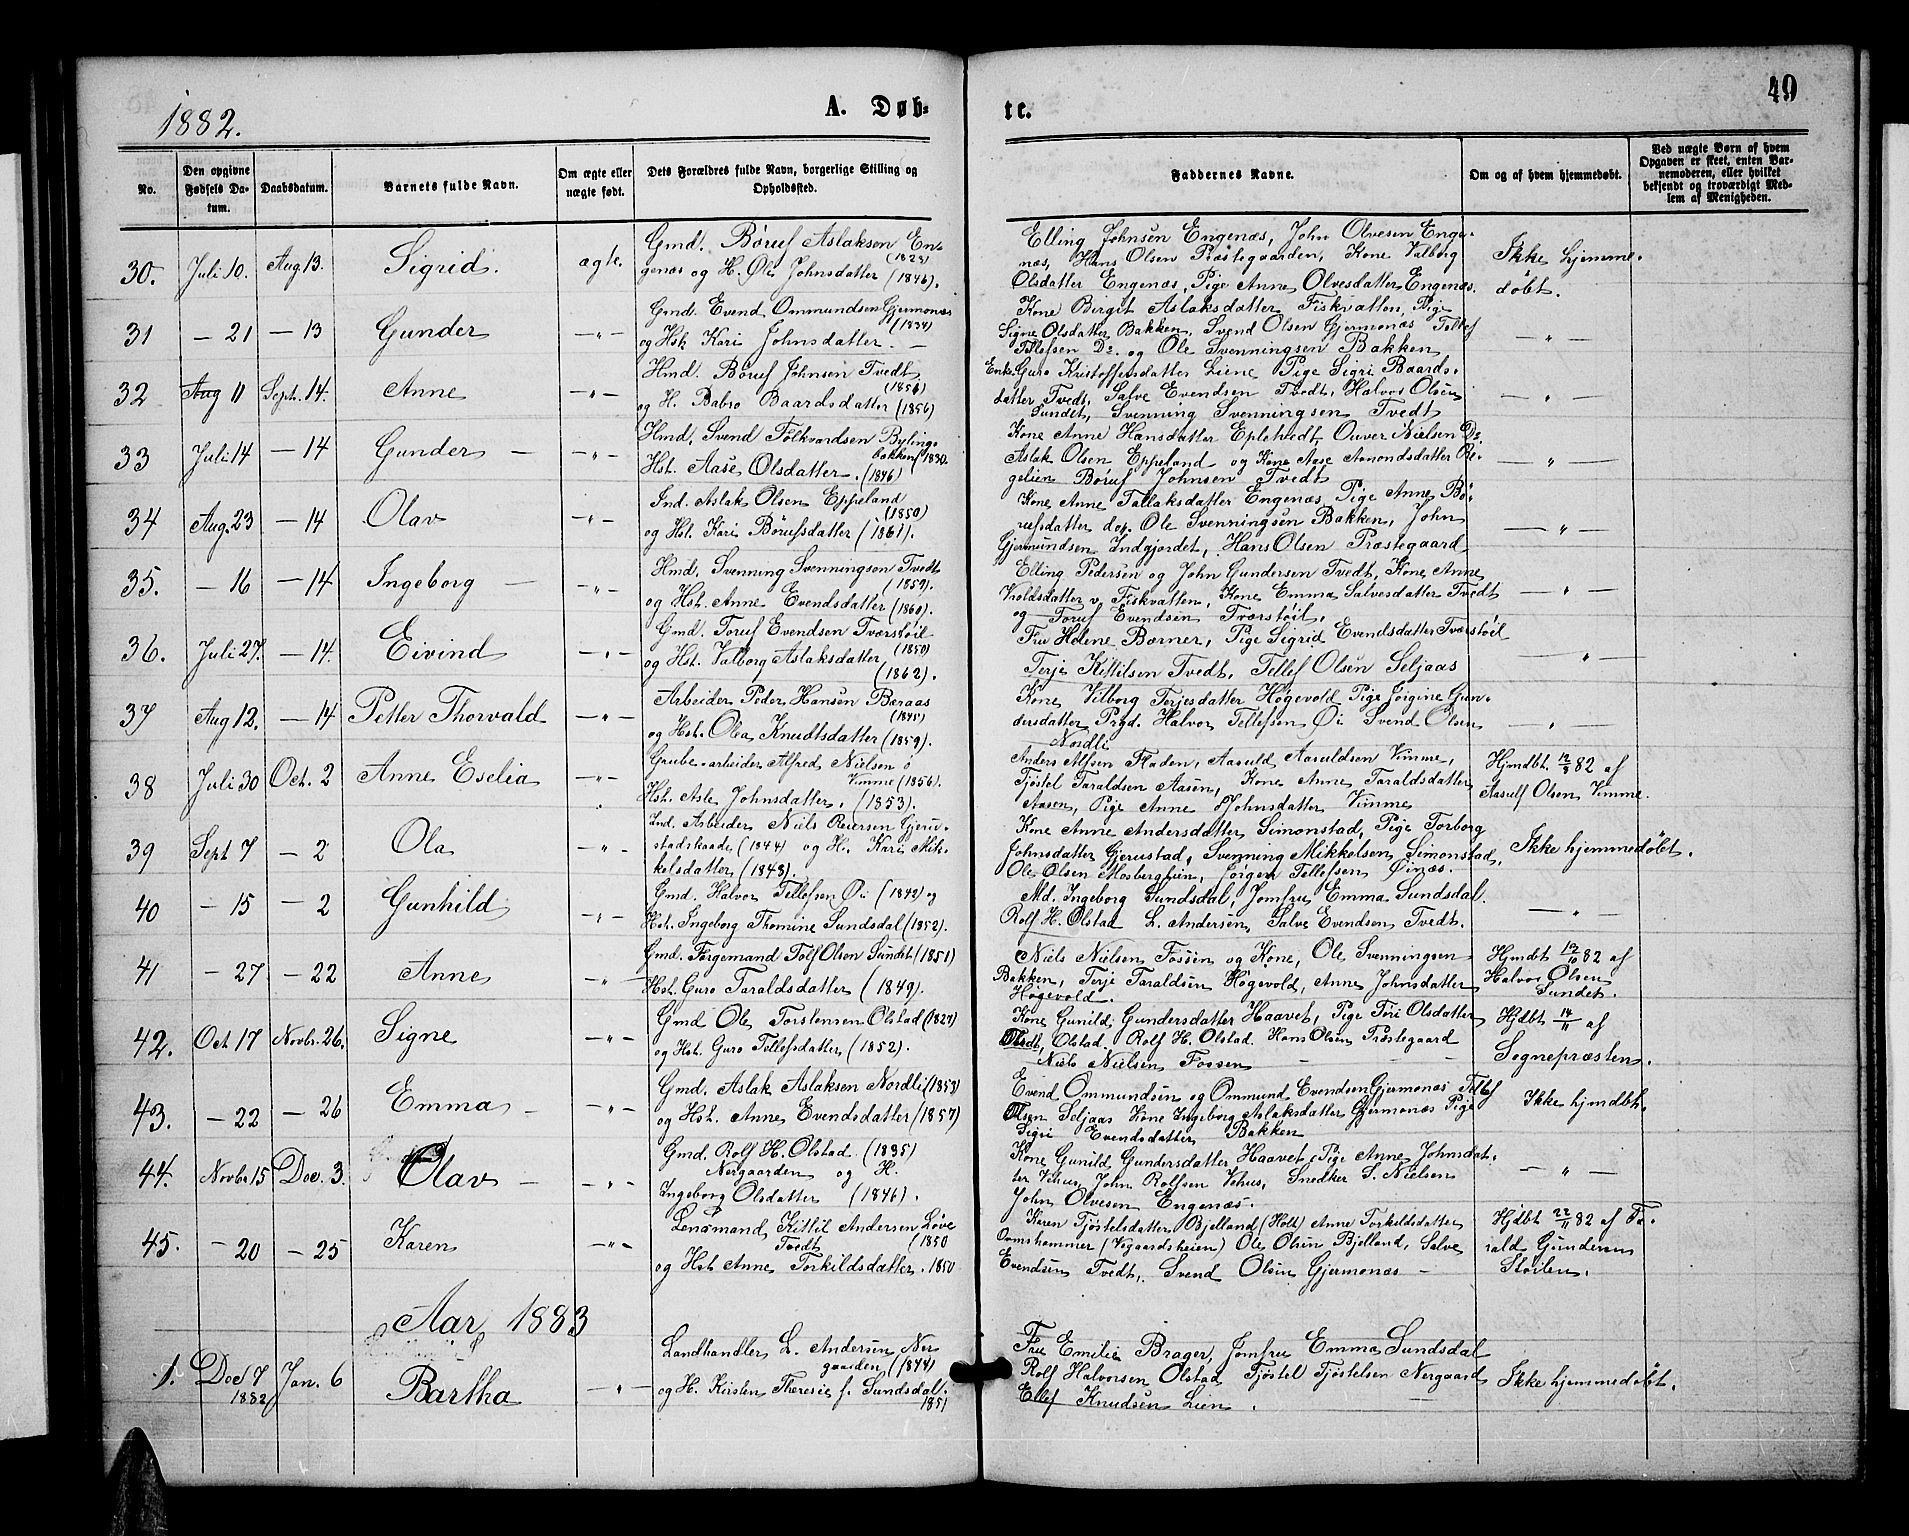 1882.
A. Døb-
te.
49
No.
Den opgivne Fødsels Datum.
Daabsdatum.
Barnets fulde Navn.
Om ægte eller uægte født.
Dets Forældres fulde Navn, borgerlige Stilling og Opholdssted.
Faddernes Navne.
Om og af hvem hjemmedøbt.
Ved uægte Børn af hvem Opgaven er skeet, enten Barnemoderen, eller hvilket bekjendt og troværdigt Medlem af Menigheden.
30. Juli 10. Aug 13. Sigrid. ægte.
Gmd. Børuf Aslaksen En-
genæs og H. Øli Johnsdatter (1846).
Elling Johnsen Engenæs, John Olvesen Enge-
næs, Hans Olsen Præstegaarden, Kone Valborg
Olsdatter Engenæs, Pige Anne Olvesdatter Engenæs.
Ikke hjemme-
døbt.
31 — 21 — 13 Gunder — " —
Gmd. Evend Ommundsen Gjermonæs
(1834)
og Hst Kari Johnsdatter. —
Kone Birgit Aslaksdatter Fiskvatten, Pige
Signe Olsdatter Bakken, Svend Olsen Gjermonæs Tellef
Tellefsen Do. og Ole Svenningsen Bakken
— " —
32 Aug 11 Sept. 14. Anne — " —
Hmd. Børuf Johnsen Tvedt
(1856)
og H. Babro Baardsdatter (1856)
Enke Guro Kristoffersdatter Liene Pige Sigri Baards-
datter Tvedt, Salve Evendsen Tvedt, Halvor Olsen
Sundet, Svenning Svenningsen Tvedt
— " —
33 Juli 14 — 14 Gunder — — " —
Hmd. Svend Folkvardsen Byling-
bakken (1830.
Hst. Aase Olsdatter. (1846)
Kone Anne Hansdatter Eplehtedt, Ouver Nielsen Do.
Aslak Olsen Eppeland og Kone Aase Aamondsdatter Re-
gelien Børuf Johnsen Tvedt
— " —
34 Aug. 23 — 14 Olav — " —
Ind. Aslak Olsen Eppeland
(1850)
og Hst. Kari Børufsdatter (1861).
Kone Anne Tallaksdatter Engenæs, Pige Anne Bø-
rufsdatter do. Ole Svenningsen Bakken, John
Gjermundsen Indgjordet, Hans Olsen Præstegaard
— " —
35. — 16 — 14 Ingeborg — — " —
Hmd. Svenning Svenningsen Tvedt
(1859)
og Hst. Anne Evendsdatter (1860).
Elling Pedersen og John Gundersen Tvedt, Kone Anne
Vroldsdatter v. Fiskvatten, Kone Emma Salvesdatter Tvedt
og Toruf Evendsen Tværstøil.
— " —
36. Juli 27. — 14. Eivind — " —
Gmd. Toruf Evendsen Tværstøil
(1850)
og Hst. Valborg Aslaksdatter
(1862).
Fru Helene Børner, Pige Sigrid Evendsdatter Tværstøil
Terje Kittilsen Tvedt, Tellef Olsen Seljaas
— " —
37 Aug 12. — 14 Petter Thorvald — " —
Arbeider Peder Hansen Børaas
(1845)
og Hst. Olea Knudtsdatter (1859).
Kone Vilborg Terjesdatter Høgevold Pige Jørgine Gun-
dersdatter Prgd. Halvor Tellefsen Øi Svend Olsen
Nordli
— " —
38 Juli 30 Oct. 2 Anne Eselia — " —
Grube-arbeider Alfred Nielsen ö
Vimme (1856).
Hst. Asle Johnsdatter, (1853).
Anders Alfsen Staden, Aasuld Aasuldsen Vimme,
Tjøstel Taraldsen Aasen, Kone Anne Taraldsdatter
Aasen, Pige Anne Johnsdatter Vimme
Hjmdbt 12/8 82 af
Aasulf Olsen Vimme.
39 Sept 7 — 2 Ola — " —
Ind. Arbeider Niels Reiersen Gjeru-
stadskaade (1844) og H. Kari Mik-
kelsdatter (1848).
Kone Anne Andersdatter Simonstad, Pige Torborg
Johnsdatter Gjerustad, Svenning Mikkelsen Simonstad,
Ole Olsen Mosberghein, Jørgen Tellefsen Øinæs.
Ikke hjemmedøbt.
40 — 15 — 2 Gunhild — " —
Gmd. Halvor Tellefsen Øi (1842) og
Hst. Ingeborg Thomine Sundsdal (1852).
Md. Ingeborg Sundsdal, Jomfru Emma Sundsdal.
Rolf H. Olstad L. Andersen, Salve Evendsen Tvedt.
— " —
41 — 27 — 22 Anne — " —
Gmd. Fergemand Tolf Olsen Sundet (1851)
Hst. Guro Taraldsdatter (1849).
Niels Nielsen Fossen og Kone, Ole Svenningsen
Bakken, Terje Taraldsen Høgevold, Anne Johnsdatter
Høgevold.
Hjmdbt 10/10 82 af
Halvor Olsen
Sundet.
42. Oct 17 Novbr. 26. Signe — " —
Gmd Ole Torstensen Olstad (1827)
og Hst. Guro Tellefsdatter (1852).
Kone Gunild Gundersdatter Haavet, Pige Tori Olsdatter
Olstad. Rolf H. Olstad. Hans Olsen Præstegaard
Niels Nielsen Fossen — —
Hjdbt 14/11 af
Sognepræsten.
43. — 22 — 26 Emma — — " —
Gmd. Aslak Aslaksen Nordli (1853)
og Hst. Anne Evendsdatter (1857)
Evend Ommundsen og Ommund Evendsen Gjermonæs Tellef
Olsen Seljaas Kone Ingeborg Aslaksdatter Gjermonæs Pige
Sigri Evendsdatter Bakken
Ikke hjmdbt.
44. Novbr 15 Dec. 3. Olav — — " —
Gmd. Rolf H. Olstad (1835)
Nergaarden og H.
Ingeborg Olsdatter (1846).
Kone Gunild Gundersdatter Haavet, Pige Anne Johnsdat-
ter Vehus, John Rolfsen Vehus, Snedker S. Nielsen
John Olvesen Engenæs.
— " —
45. — 20 — 25 Karen — " —
Lensmand Kittil Andersen Løve
Tvedt (1850
og Hst Anne Torkildsdatter. 1850
Karen Tjøstelsdatter Bjelland (Holt) Anne Torkildsdatter
Ormshammer (Vegaardsheien) Ole Olsen Bjelland, Salve
Evendsen Tvedt, Svend Olsen Gjermonæs —
Hjdbt 22/11 82 af Ta-
rald Gundersen
Støilen.
Aar 1883
1. Dec 7 1882 Jan. 6 Bartha — " —
Landhandler L. Andersen Ner-
gaarden (1844)
og H. Kirsten Theresie f. Sundsdal.
1851
Fru Emilie Brager, Jomfru Emma Sundsdal
Rolf Halvorsen Olstad Tjøstel Tjøstelsen Nergaard
Ellef Knudsen Lien. —
Ikke hjemmedøbt.